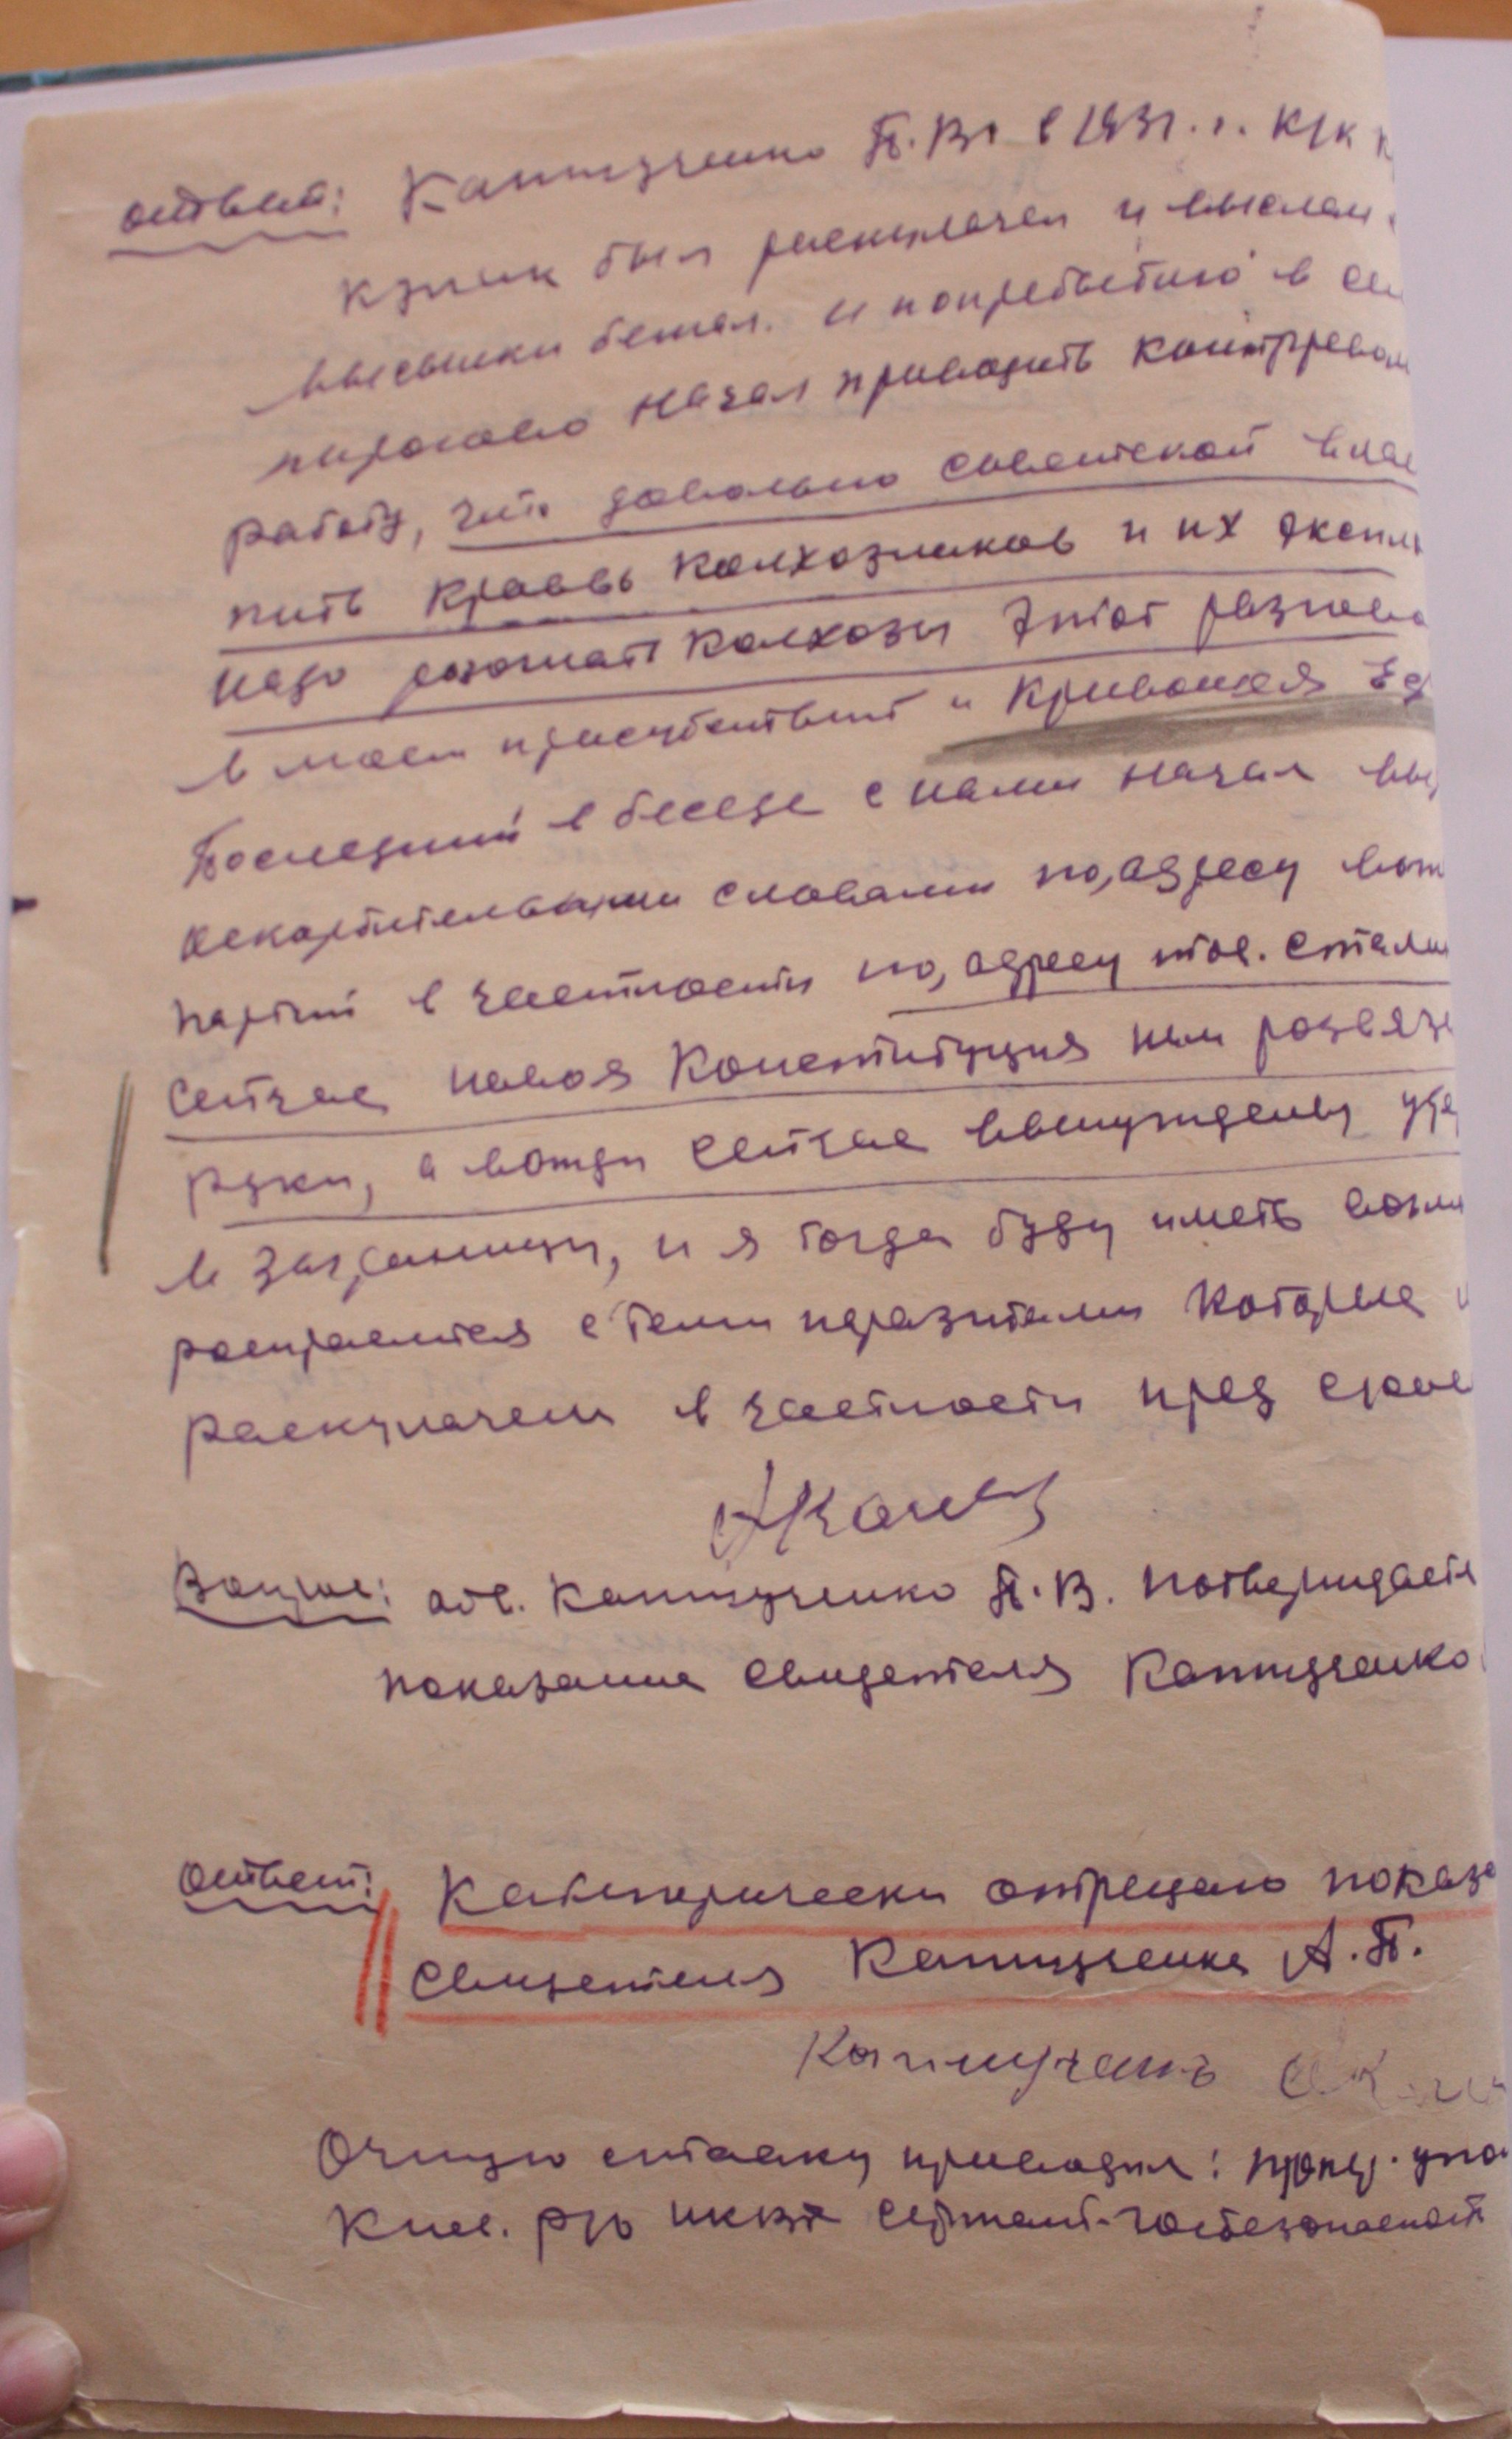 ответ: Капшученко П.В. в 1931.г. как
кулак был раскулачен и выслан.
высылки бежал. и поприбытию в се
пирогово начал проводить контррево
работу, что довольно советской влас
пить кровь колхозников и их экспл
надо разогнать колхозы Этот разгово
в моем присутствий и Кривошея Ед
Последний в беседе с нами начал вы
оскорбительными словами по, адресу вож
партий в частности по, адресу тов. стали
сейчас новая Конституция нам развяз
руки, а вожди сейчас вынуждены уде
в заграницу, и я тогда буду иметь возм
расправится с теми паразитами которые
раскулачели в частности пред срове

Вопрос: обв. Капшученко П.В. потверждаете
показание свидетеля Капшученко
ответ: Категорически отрецаю показа
свидетеля Капшученка А.П.
Капшученко
Очную ставку проводил: опер. упо
Кие. р/о НКВД сержант госбезопасност